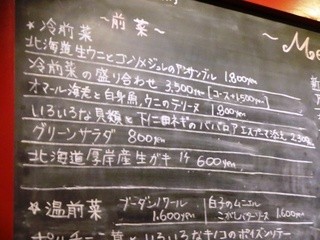 ~前菜~
~Me
*冷前菜
北海道生ウニとコンソメジュレのアンサンブル 1,800yen
冷前菜の盛り合わせ 3,500yen [コース+1,500yen]
オマール海老と白身魚、ウニのテリーヌ 1,800yen
いろいろな貝類と下仁田ネギのババロア エスプーマ添え 2,300yen
グリーンサラダ 800yen
北海道厚岸産生ガキ 1ケ 600yen
*温前菜
ブーダンノワール 1,600yen
白子のムニエル こがしバターソース 1,600yen
ポルチーニ茸といろいろなキノコのポイズンソテー